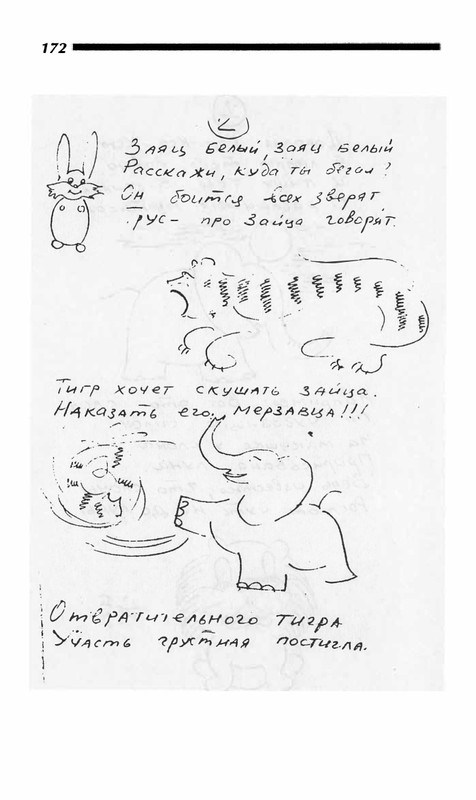 172
2
Заяц белый, заяц белый
Расскажи, куда ты бегал?
Он боится всех зверят,
Трус - про зайца говорят.
Тигр хочет скушать зайца.
Наказать его, мерзавца!!!
Отвратительного тигра
Участь грустная постигла.